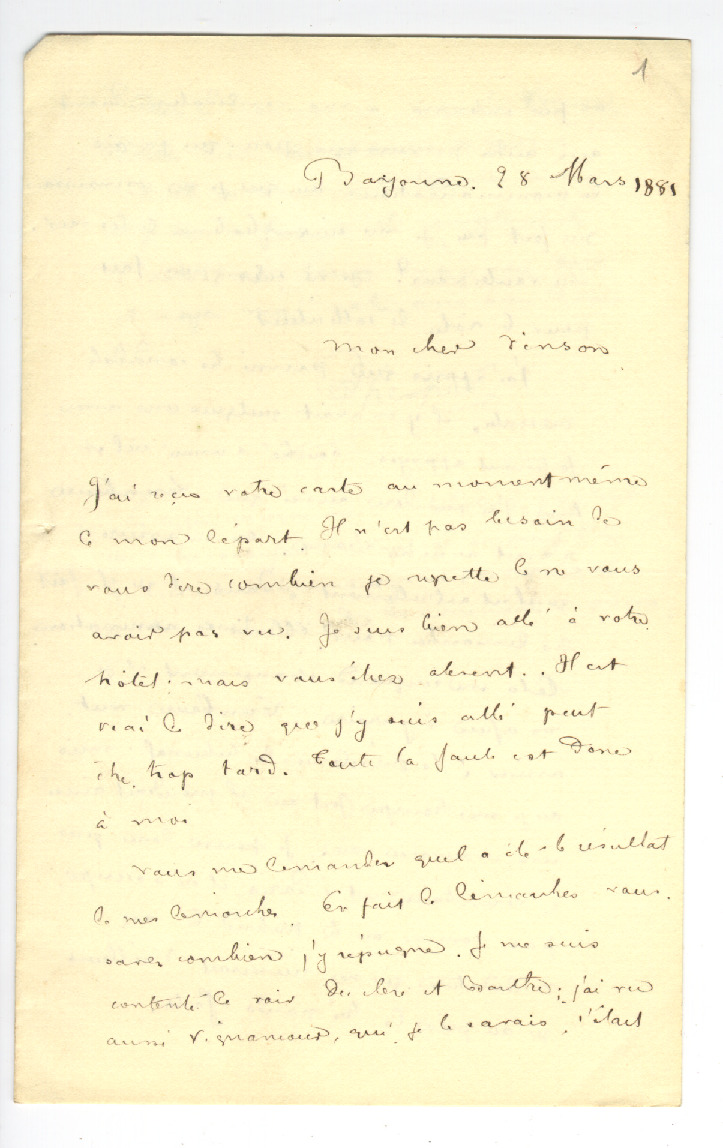 1
Bayonne. 28 Mars 1881
Mon cher Vinson
J'ai reçu votre carte au moment même
de mon départ. Il n'est pas besoin de
vous dire combien je regrette de ne vous
avoir pas vu. Je suis bien allé à votre
hôtel. mais vous étiez absent.. Il est
vrai de dire que j'y suis allé peut
être trop tard. Toute la faute est donc
à moi
Vous me demandez quel a été le résultat
de mes démarches. En fait de démarches vous
savez combien j'y répugne. Je me suis
contenté de voir et ; j'ai vu
aussi Vignancour, qui, je le savais, était